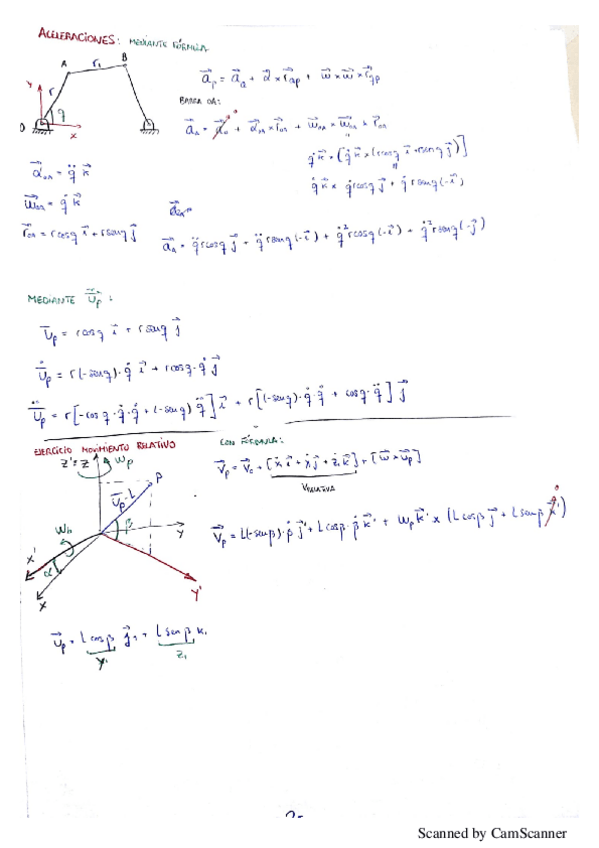 ACELERACIONES: MEDIANTE FÓRMULA
A r₁ B
r
Y
q
O
X
a⃗p = a⃗a + α⃗ × r⃗ap + ω⃗ × ω⃗ × r⃗ap
BARRA OA:
a⃗A = a⃗o + α⃗OA × r⃗OA + ω⃗OA × ω⃗OA × r⃗OA
q̇ k⃗ × [q̇ k⃗ × (r cosq i⃗ + r senq j⃗)]
q̇ k⃗ × q̇ r cosq j⃗ + q̇ r senq (-i⃗)
α⃗OA = q̈ k⃗
ω⃗OA = q̇ k⃗
r⃗OA = r cosq i⃗ + r senq j⃗
a⃗A = q̈ r cosq j⃗ + q̈ r senq (-i⃗) + q̇² r cosq (-i⃗) + q̇² r senq (-j⃗)
MEDIANTE Ü⃗p :
U̅p = r cosq i⃗ + r senq j⃗
U̅̇p = r(-senq)·q̇ i⃗ + r cosq·q̇ j⃗
U̅̈p = r[-cosq·q̇·q̇ + (-senq) q̈] i⃗ + r[(-senq)·q̇·q̇ + cosq·q̈] j⃗
EJERCICIO MOVIMIENTO RELATIVO
CON FÓRMULA:
Z'≡Z Wp
P
U̅p L
β
Y
Wh
X'
α
X
Y'
V⃗p = V⃗o + [ẋ₁ i⃗ + ẏ₁ j⃗ + ż₁ k⃗] + [ω⃗ × U⃗p]
VRELATIVA
V⃗p = L(-senβ)·β̇ j⃗' + L cosβ·β̇ k⃗' + ωp k⃗' × (L cosβ j⃗ + L senβ k⃗')
U⃗p = L cosβ j⃗₁ + L senβ k₁
Y₁ Z₁
Scanned by CamScanner